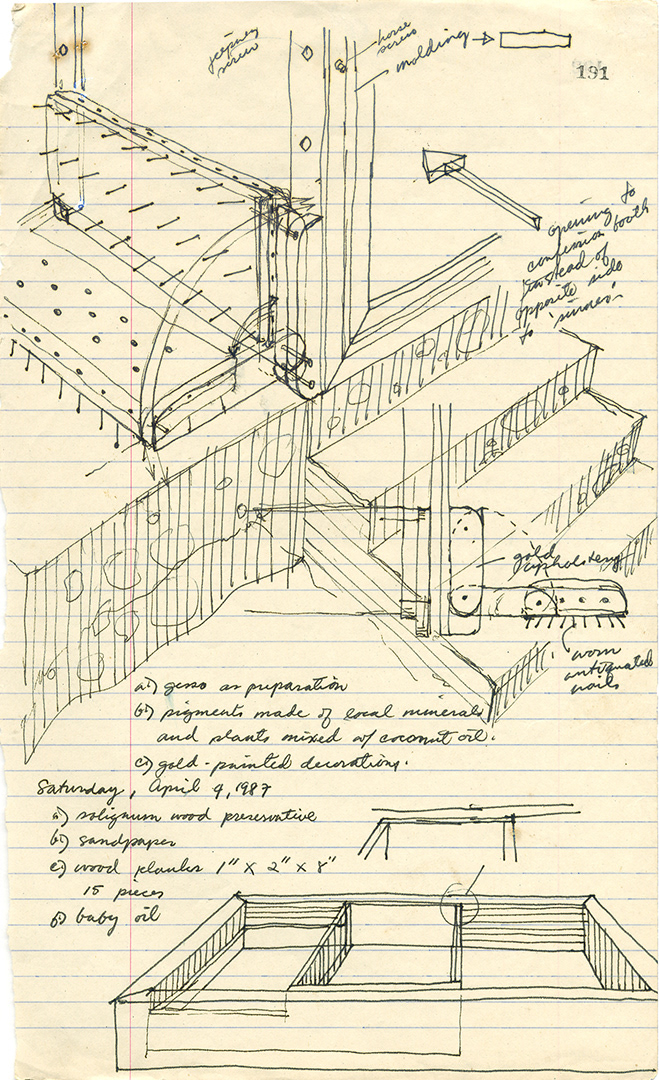 jeepney
screw
horse
screw
molding
191
opening to
confession booth
instead of
opposite side
to 'sinner'
gold
upholstery
worn
antiquated
nails
a.) gesso as preparation
b.) pigments made of local minerals
and plants mixed w/ coconut oil.
c.) gold-painted decorations.
Saturday, April 4, 1987
a.) solignum wood preservative
b.) sandpaper
c.) wood planks 1" x 2" x 8"
15 pieces
baby oil